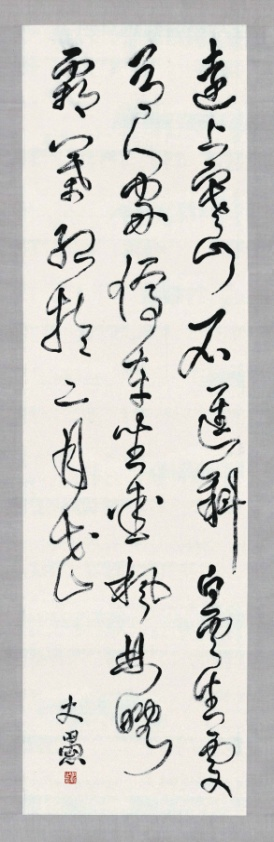 遠上寒山石逕斜白雲生處
有人家停車坐愛楓林晚
霜葉紅於二月花